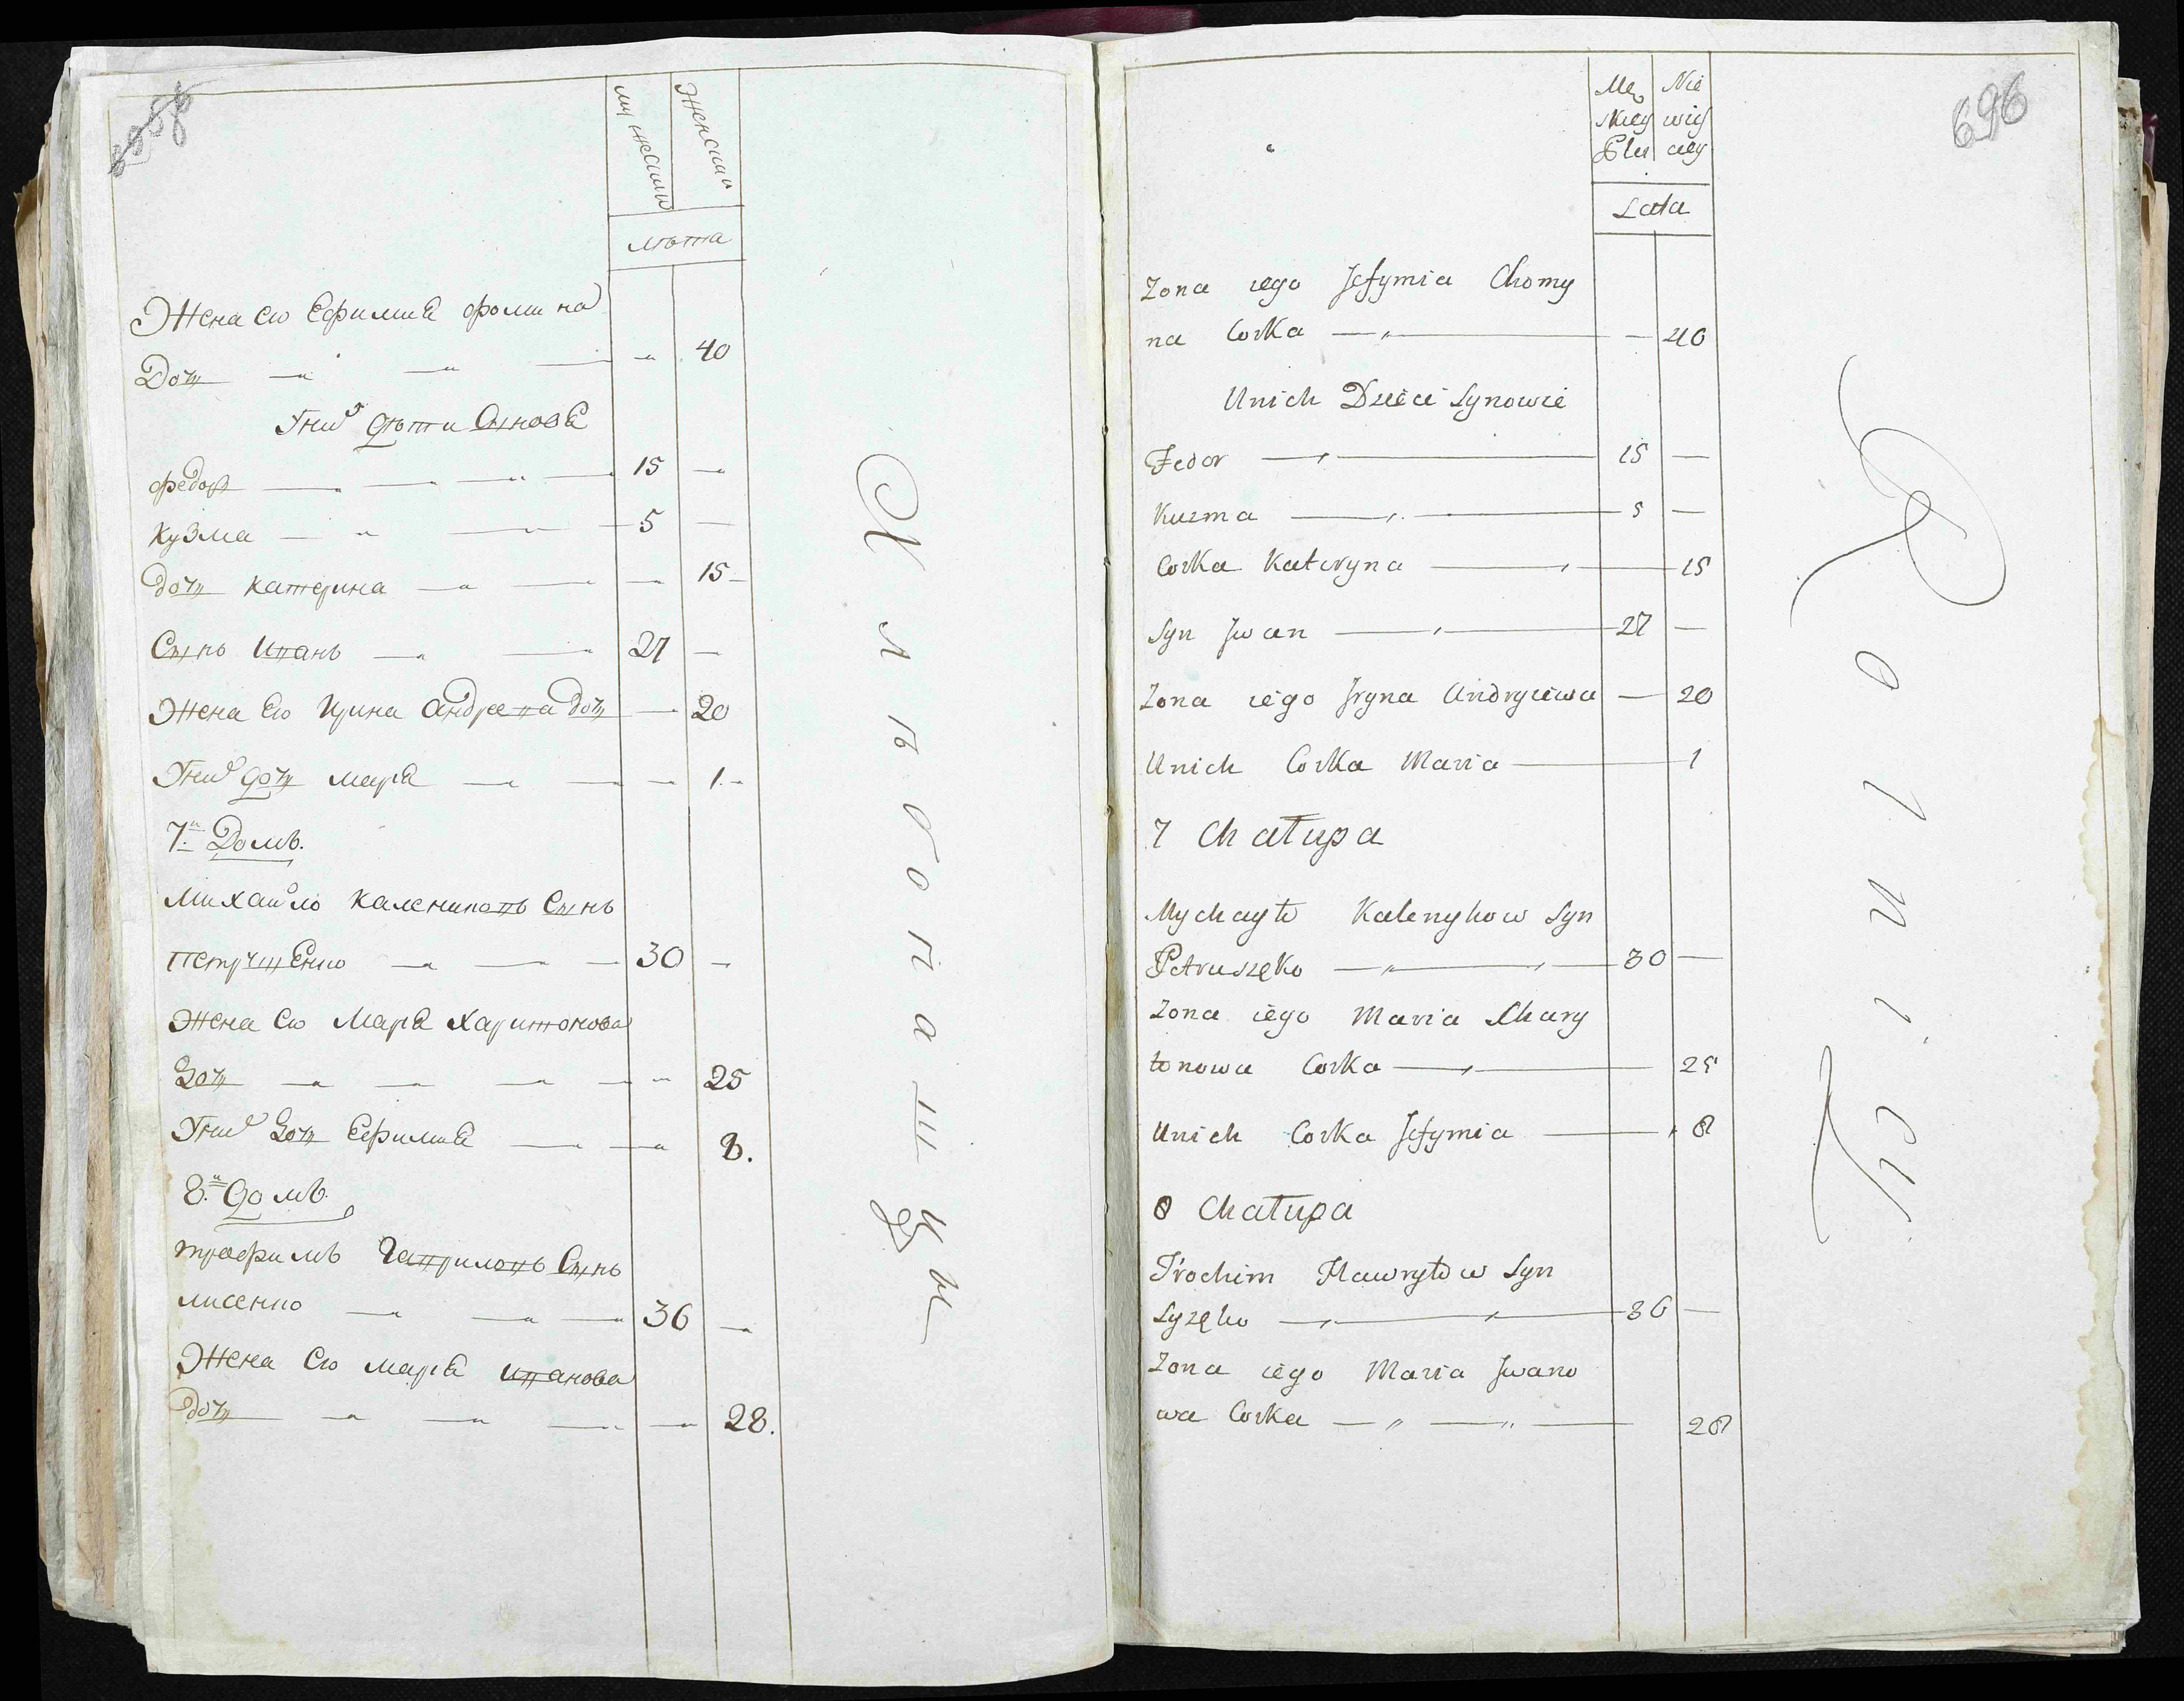 мужеска
Женска
лѣта
Жена ево Ефимиа фомина
Дочь 40
У них дѣти Сынове
федоръ 15
кузма 5
дочь катерина 15
Сынъ иванъ 27
Жена Ево Ирина андреева дочь 20
У них дочь мариа 1
7й Домъ.
михайло калениковъ Сынъ
петрущенко 30
Жена ево Мариа харитонова
дочь 25
У них дочь Ефимиа 8.
8й домъ.
трофимъ гавриловъ Сынъ
лисенко 36
Жена Ево мариа иванова
дочь 28.
Хлѣбопашцы
696
Mę Nie
skiey wieś
Płci ciey
Lata
Zona iego Jefymia Chomy
na Corka 40
Unich Dzieci Synowie
Fedor 15
Kuzma 5
Corka Kateryna 15
Syn Jwan 27
Zona iego Jryna Andryiewa 20
Unich Corka Maria 1
7 Chałupa
Mychayło Kalenykow Syn
Petruszęko 30
Zona iego Maria Chary
tonowa Corka 25
Unich Corka Jefymia 8
8 Chałupa
Trochim Hawryłow Syn
Lysęko 36
Zona iego Maria Jwano
wa Corka 28
Rolnicy